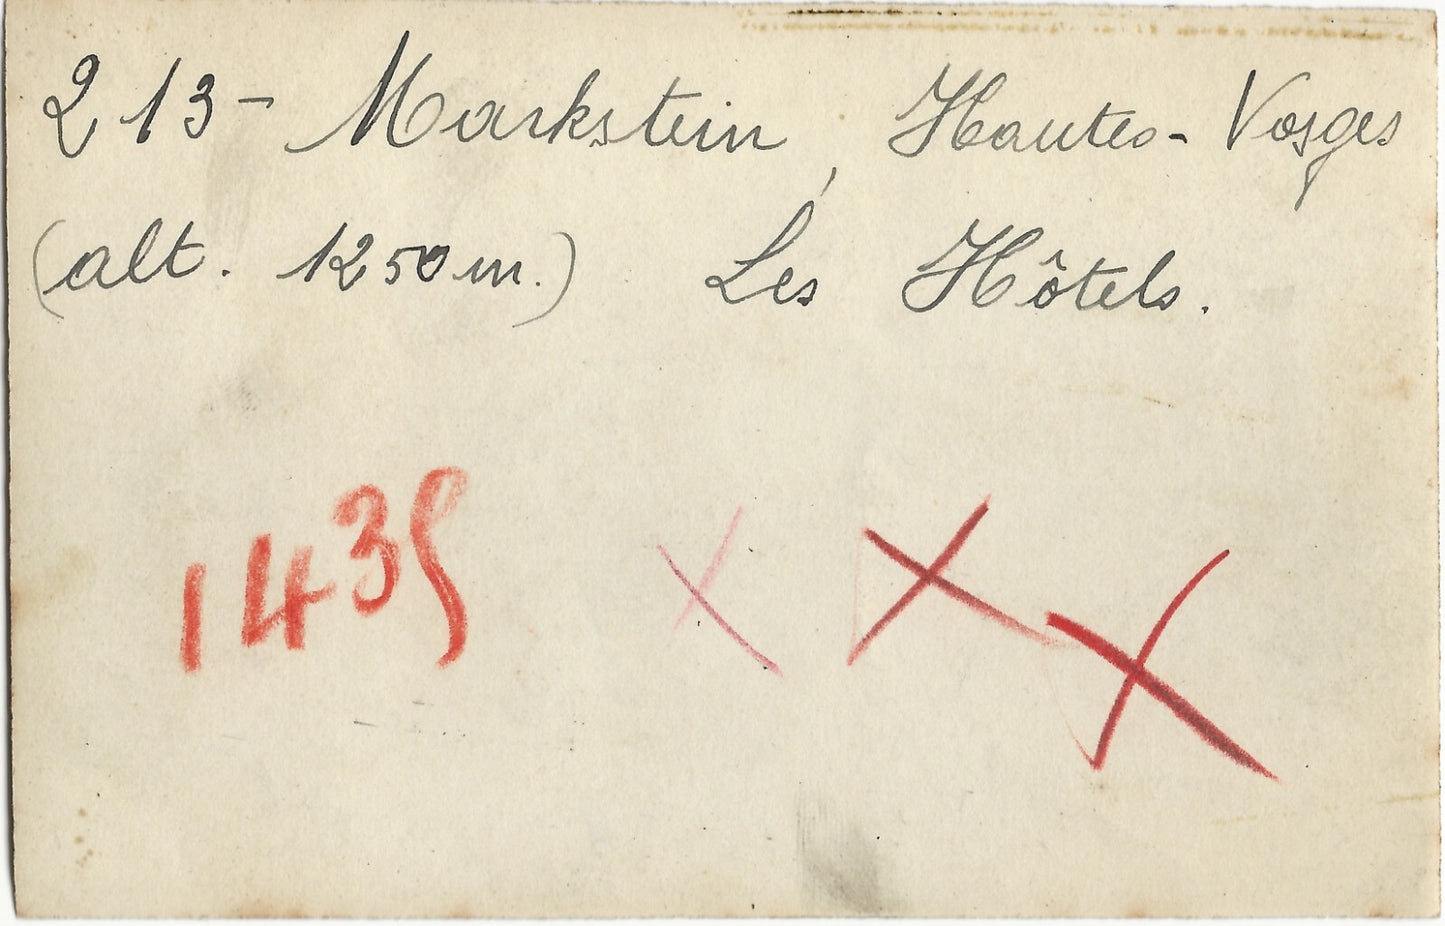 213 - Markstein, Hautes-Vosges
(alt. 1250 m.) Les Hôtels.
1435